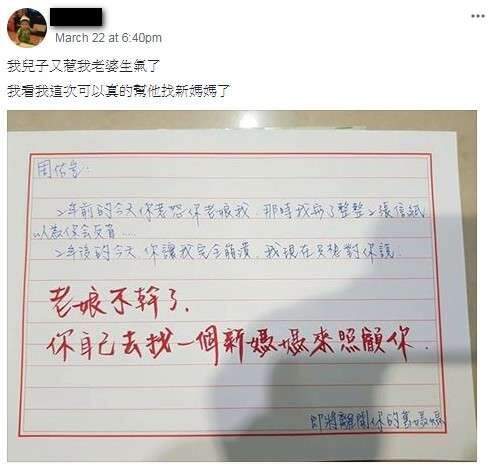 March 22 at 6:40pm
我兒子又惹我老婆生氣了
我看我這次可以真的幫他找新媽媽了
2年前的今天你惹怒你老娘我,那時我寫了整整2張信紙
以為你會反省....
2年後的今天,你讓我完全崩潰,我現在只想對你說:
老娘不幹了,
你自己去找一個新媽媽來照顧你.
即將離開你的舊媽媽